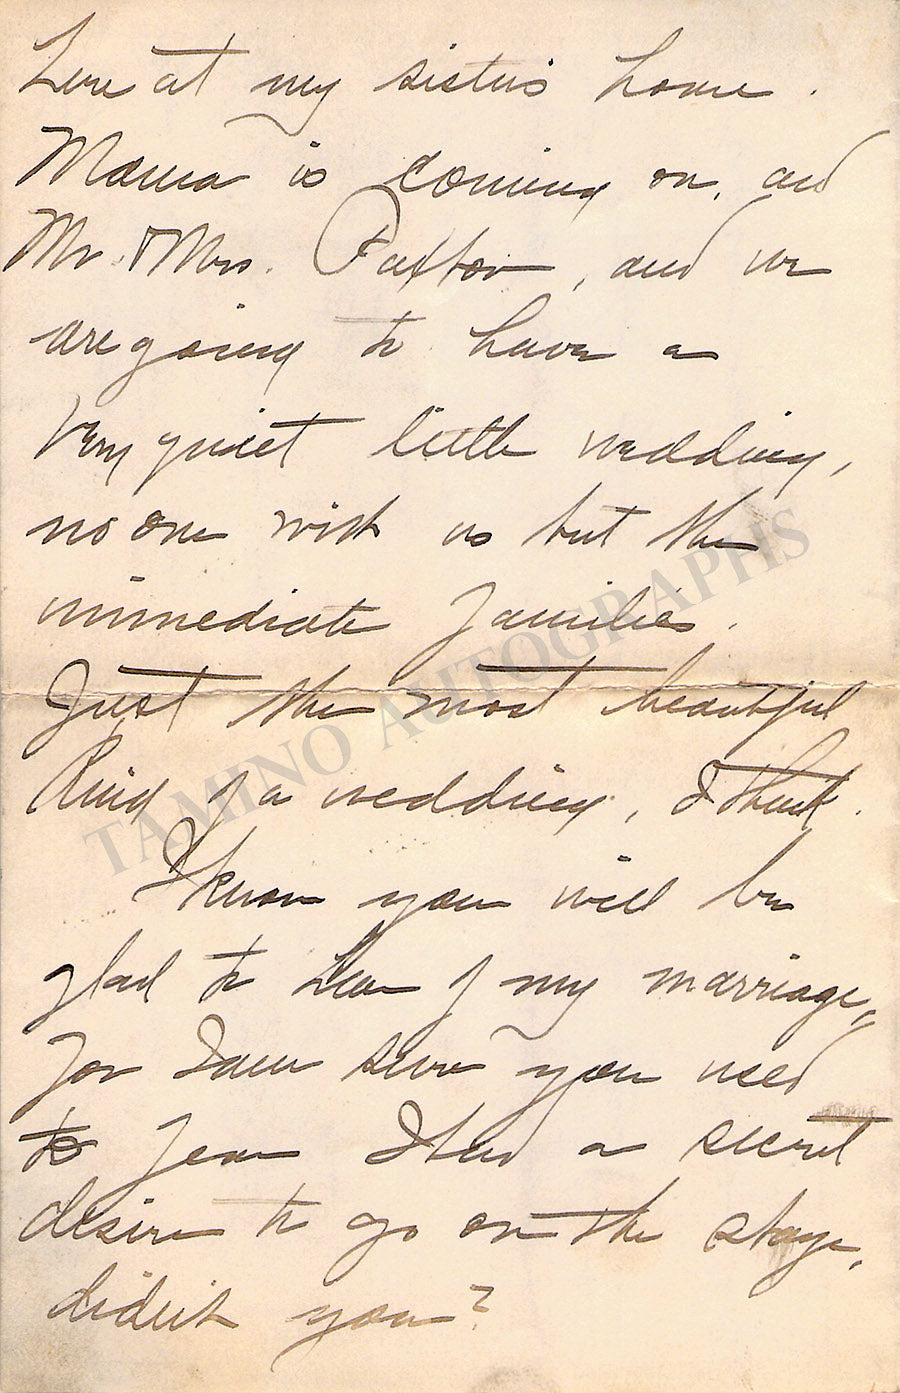 here at my sister's home.
Mama is coming on, and
Mr. & Mrs. Patton, and we
are going to have a
very quiet little wedding,
no one with us but the
immediate families.
Just the most beautiful
kind of a wedding, I think.
I know you will be
glad to hear of my marriage,
for I am sure you used
to fear I had a secret
desire to go on the stage,
didn't you?
TAMINO AUTOGRAPHS